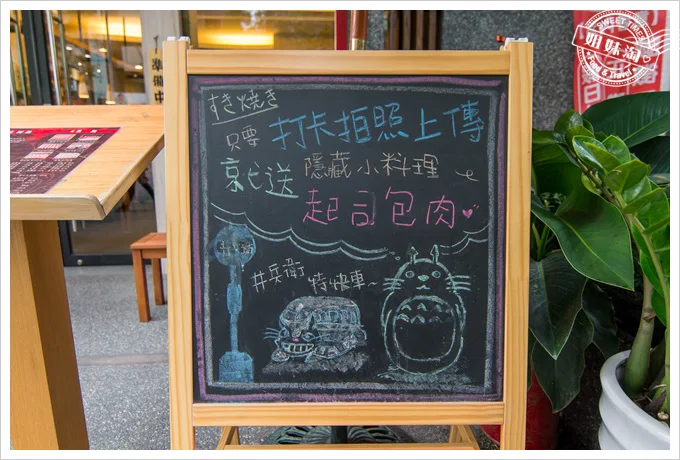 SWEET TIMES
姐妹淘
Food & Travel
準備中
すき焼き
只要 打卡拍照上傳
就送 隱藏小料理
起司包肉
井兵衛 特快車~